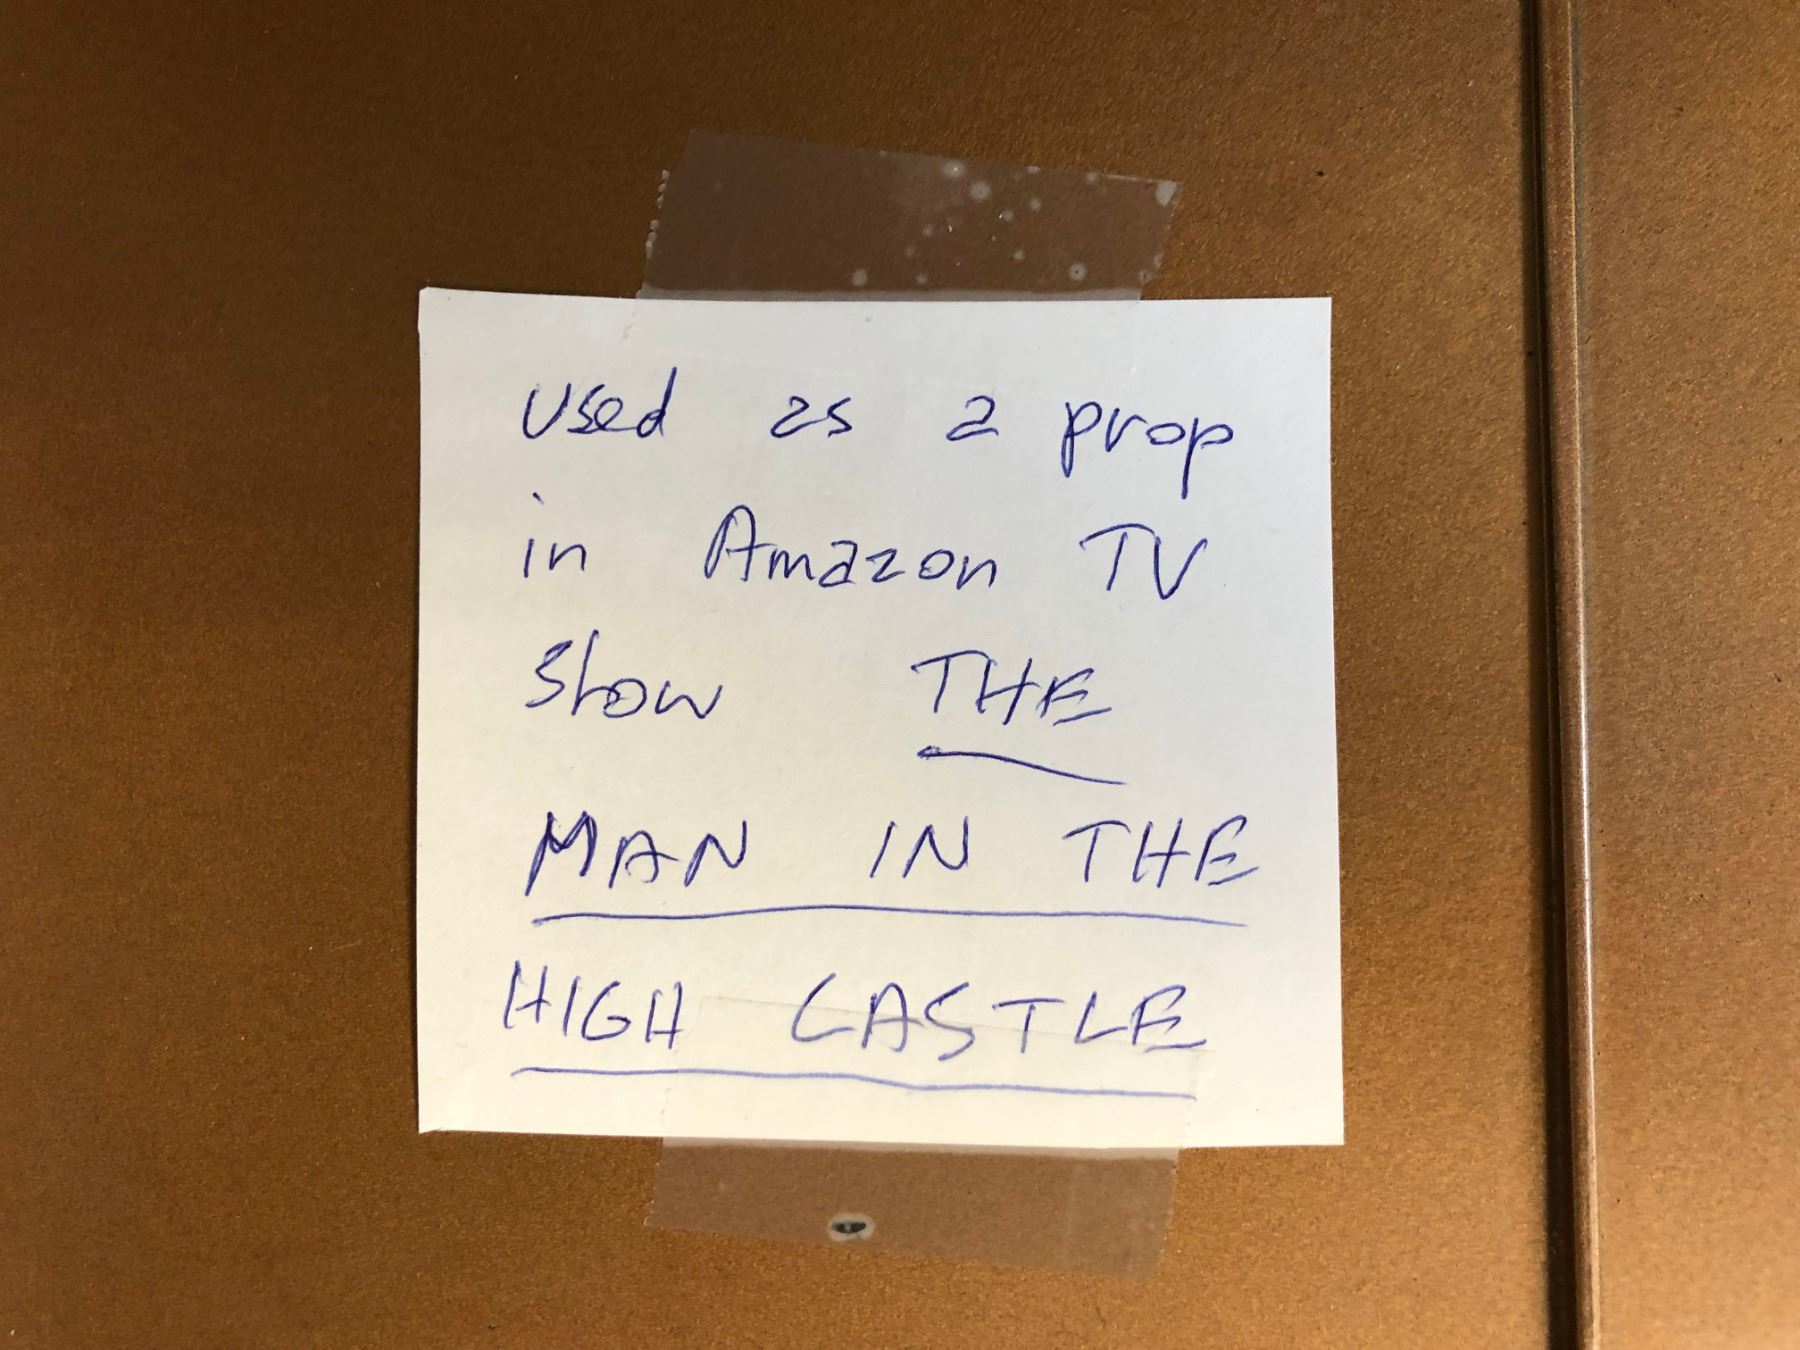 used as a prop
in Amazon TV
show THE
MAN IN THE
HIGH CASTLE